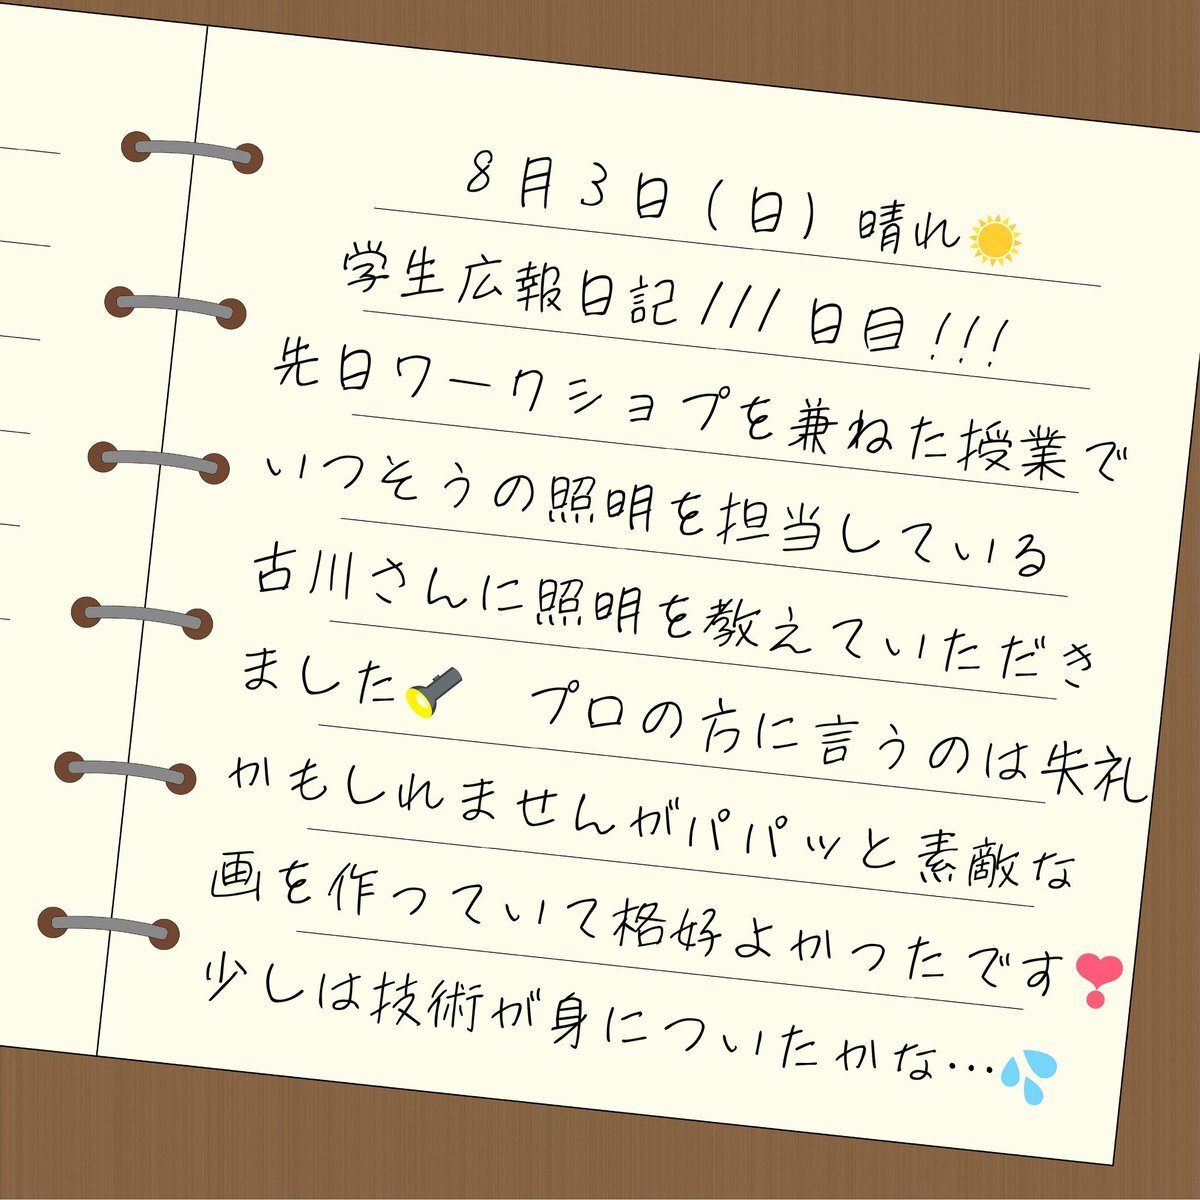 8月3日(日) 晴れ☀
学生広報日記111日目!!!
先日ワークショップを兼ねた授業で
いつそうの照明を担当している
古川さんに照明を教えていただき
ました🔦 プロの方に言うのは失礼
かもしれませんがパパッと素敵な
画を作っていて格好よかったです❣
少しは技術が身についたかな…💦